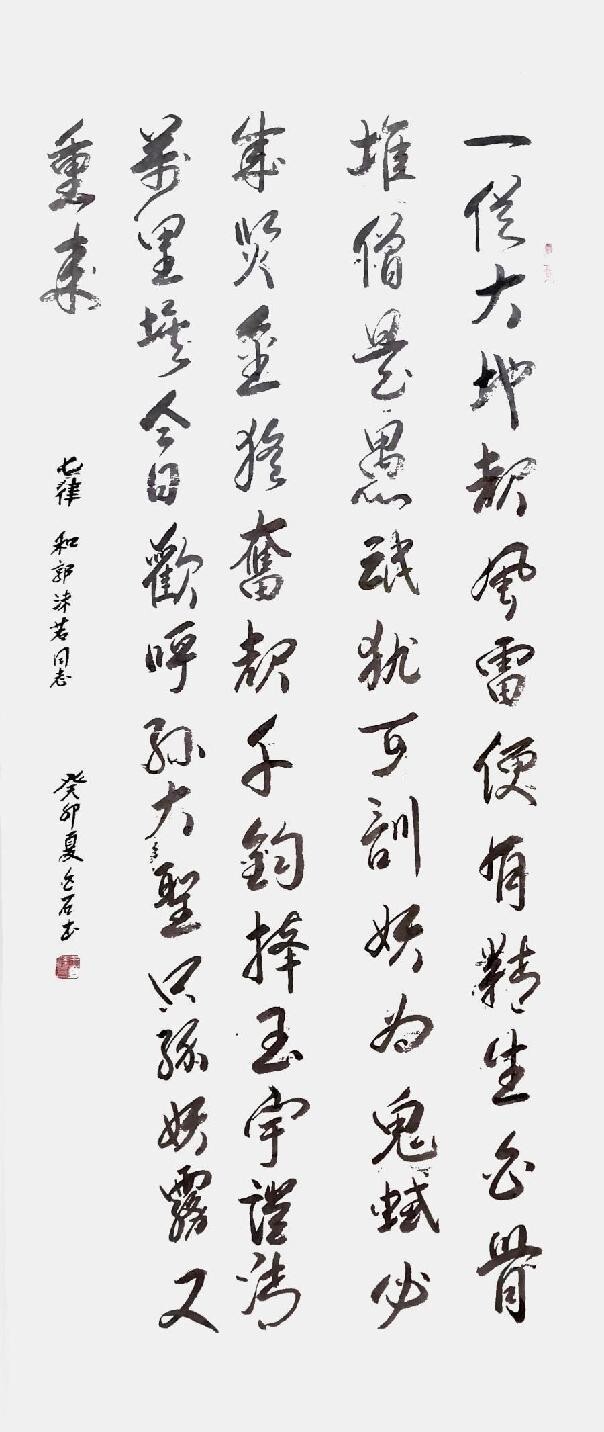 一從大地起風雷便有精生白骨
堆僧是愚氓犹可訓妖为鬼蜮必
成災金猴奮起千鈞棒玉宇澄清
萬里埃今日歡呼孫大聖只緣妖霧又
重來
七律 和郭沫若同志 癸卯夏石书